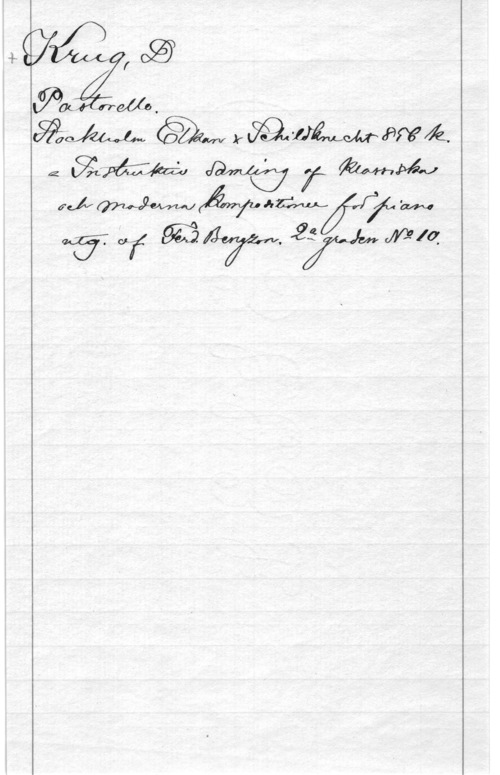 + Krug, D
Pastorello.
Stockholm Elkan & Schildknecht 856 k.
= Instruktiv Samling af Klassiska
och moderna kompositioner för piano
utg. af Ferd. Bengzon. 2a graden No 10.